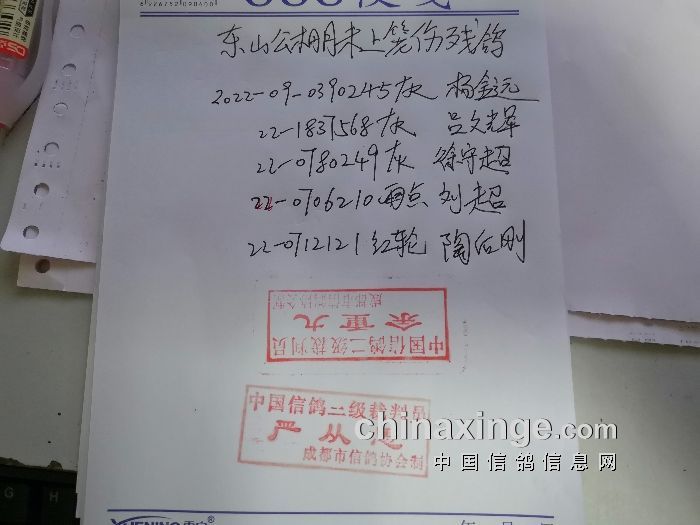 东山公棚月未上笼伤残鸽
2022-09-0390245灰 杨金元
22-1837568灰 吕文光军
22-0780249灰 徐守超
22-0706210雨点 刘超
22-0712121红轮 陶后刚
中国信鸽二级裁判员
余重九
中国信鸽二级裁判员
严从
成都市信鸽协会制
chinaxinge.com
中国信鸽信息网